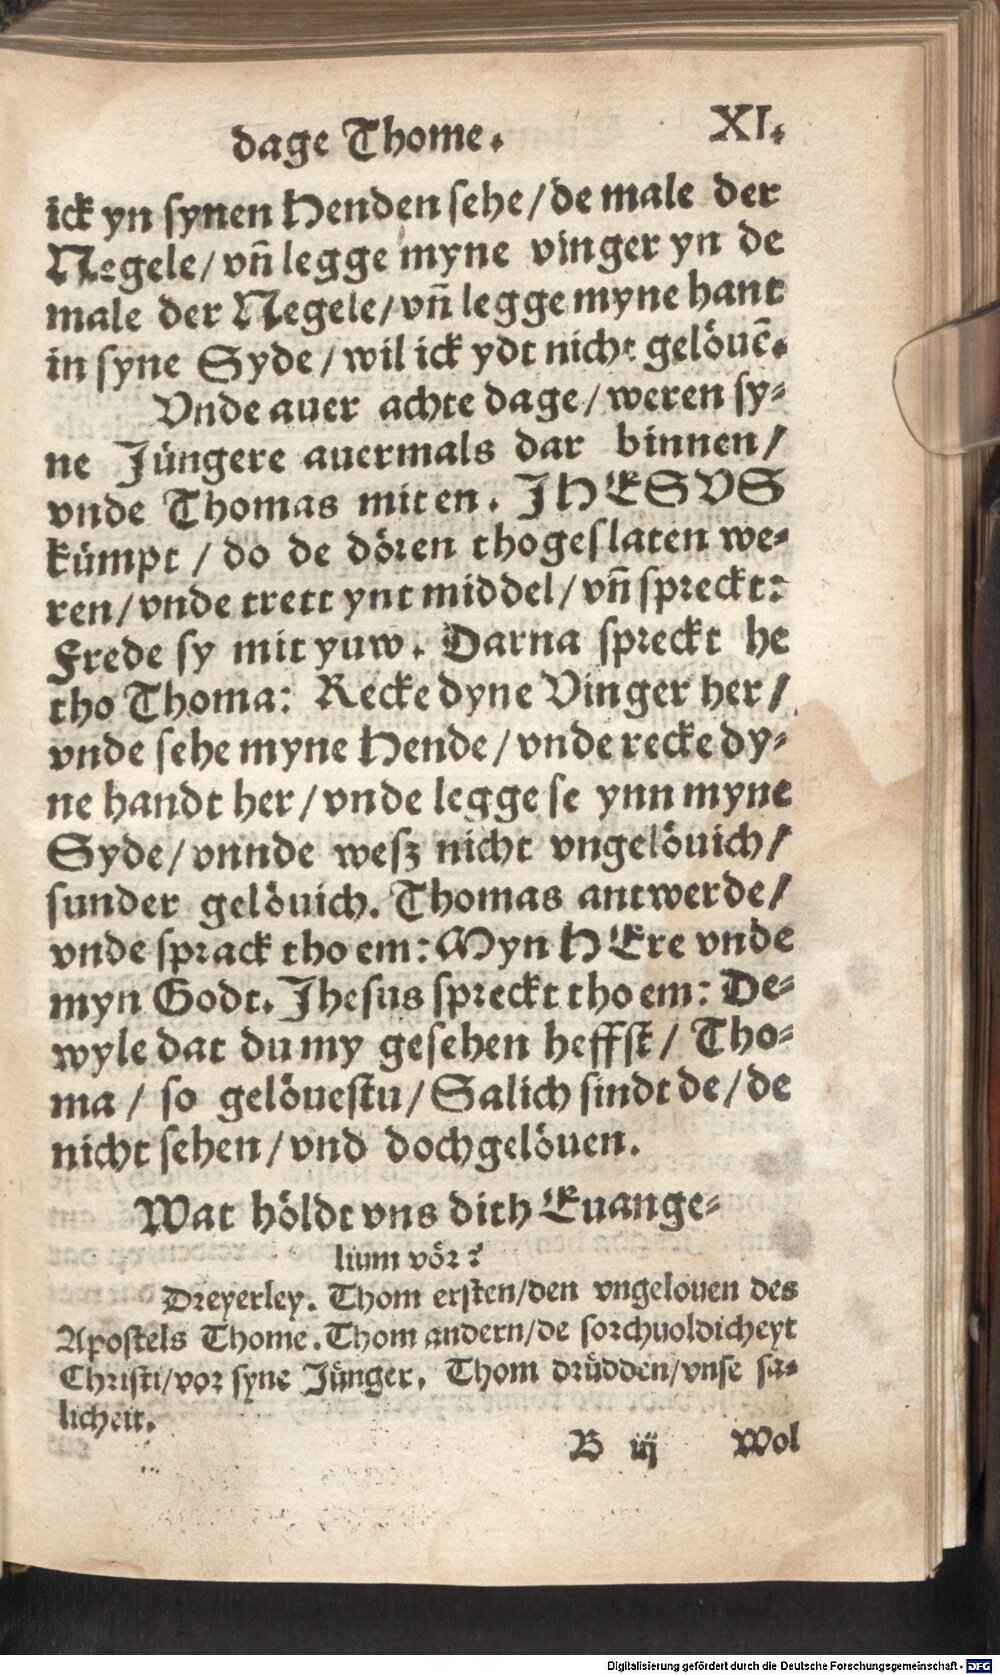 dage Thome. XI.
ick yn synen Henden sehe / de male der
Negele / vñ legge myne vinger yn de
male der Negele / vñ legge myne hant
in syne Syde / wil ick ydt nicht gelöuē.
Vnde auer achte dage / weren sy-
ne Jüngere auermals dar binnen /
vnde Thomas mit en. JHESVS
kümpt / do de dören thogeslaten we-
ren / vnde trett ynt middel / vñ spreckt:
Frede sy mit yuw. Darna spreckt he
tho Thoma: Recke dyne Vinger her /
vnde sehe myne Hende / vnde recke dy-
ne handt her / vnde legge se ynn myne
Syde / vnnde wesz nicht vngelöuich /
sunder gelöuich. Thomas antwerde /
vnde sprack tho em: Myn HEre vnde
myn Godt. Jhesus spreckt tho em: De-
wyle dat du my gesehen heffst / Tho-
ma / so gelöuestu / Salich sindt de / de
nicht sehen / vnd doch gelöuen.
Wat höldt vns dith Euange-
lium vör?
Dreyerley. Thom ersten / den vngelouen des
Apostels Thome. Thom andern / de sorchuoldicheyt
Christi / vor syne Jünger. Thom drüdden / vnse sa-
licheit.
B iij Wol
Digitalisierung gefördert durch die Deutsche Forschungsgemeinschaft - DFG